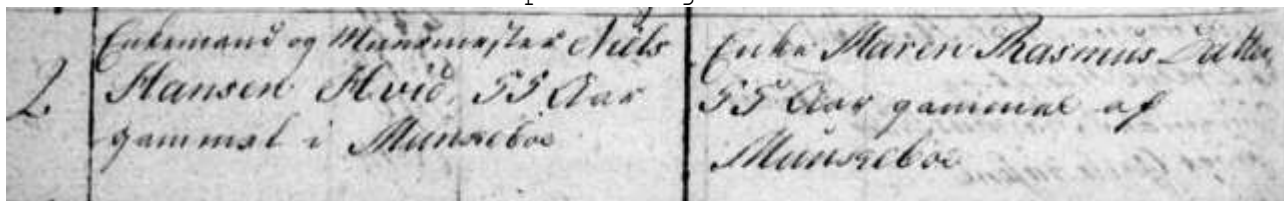 2.
Enkemand og Muurmester Niels
Hansen Hvid, 55 Aar
gammel i Munkeboe
Enke Maren Rasmus Datter
55 Aar gammel af
Munkeboe